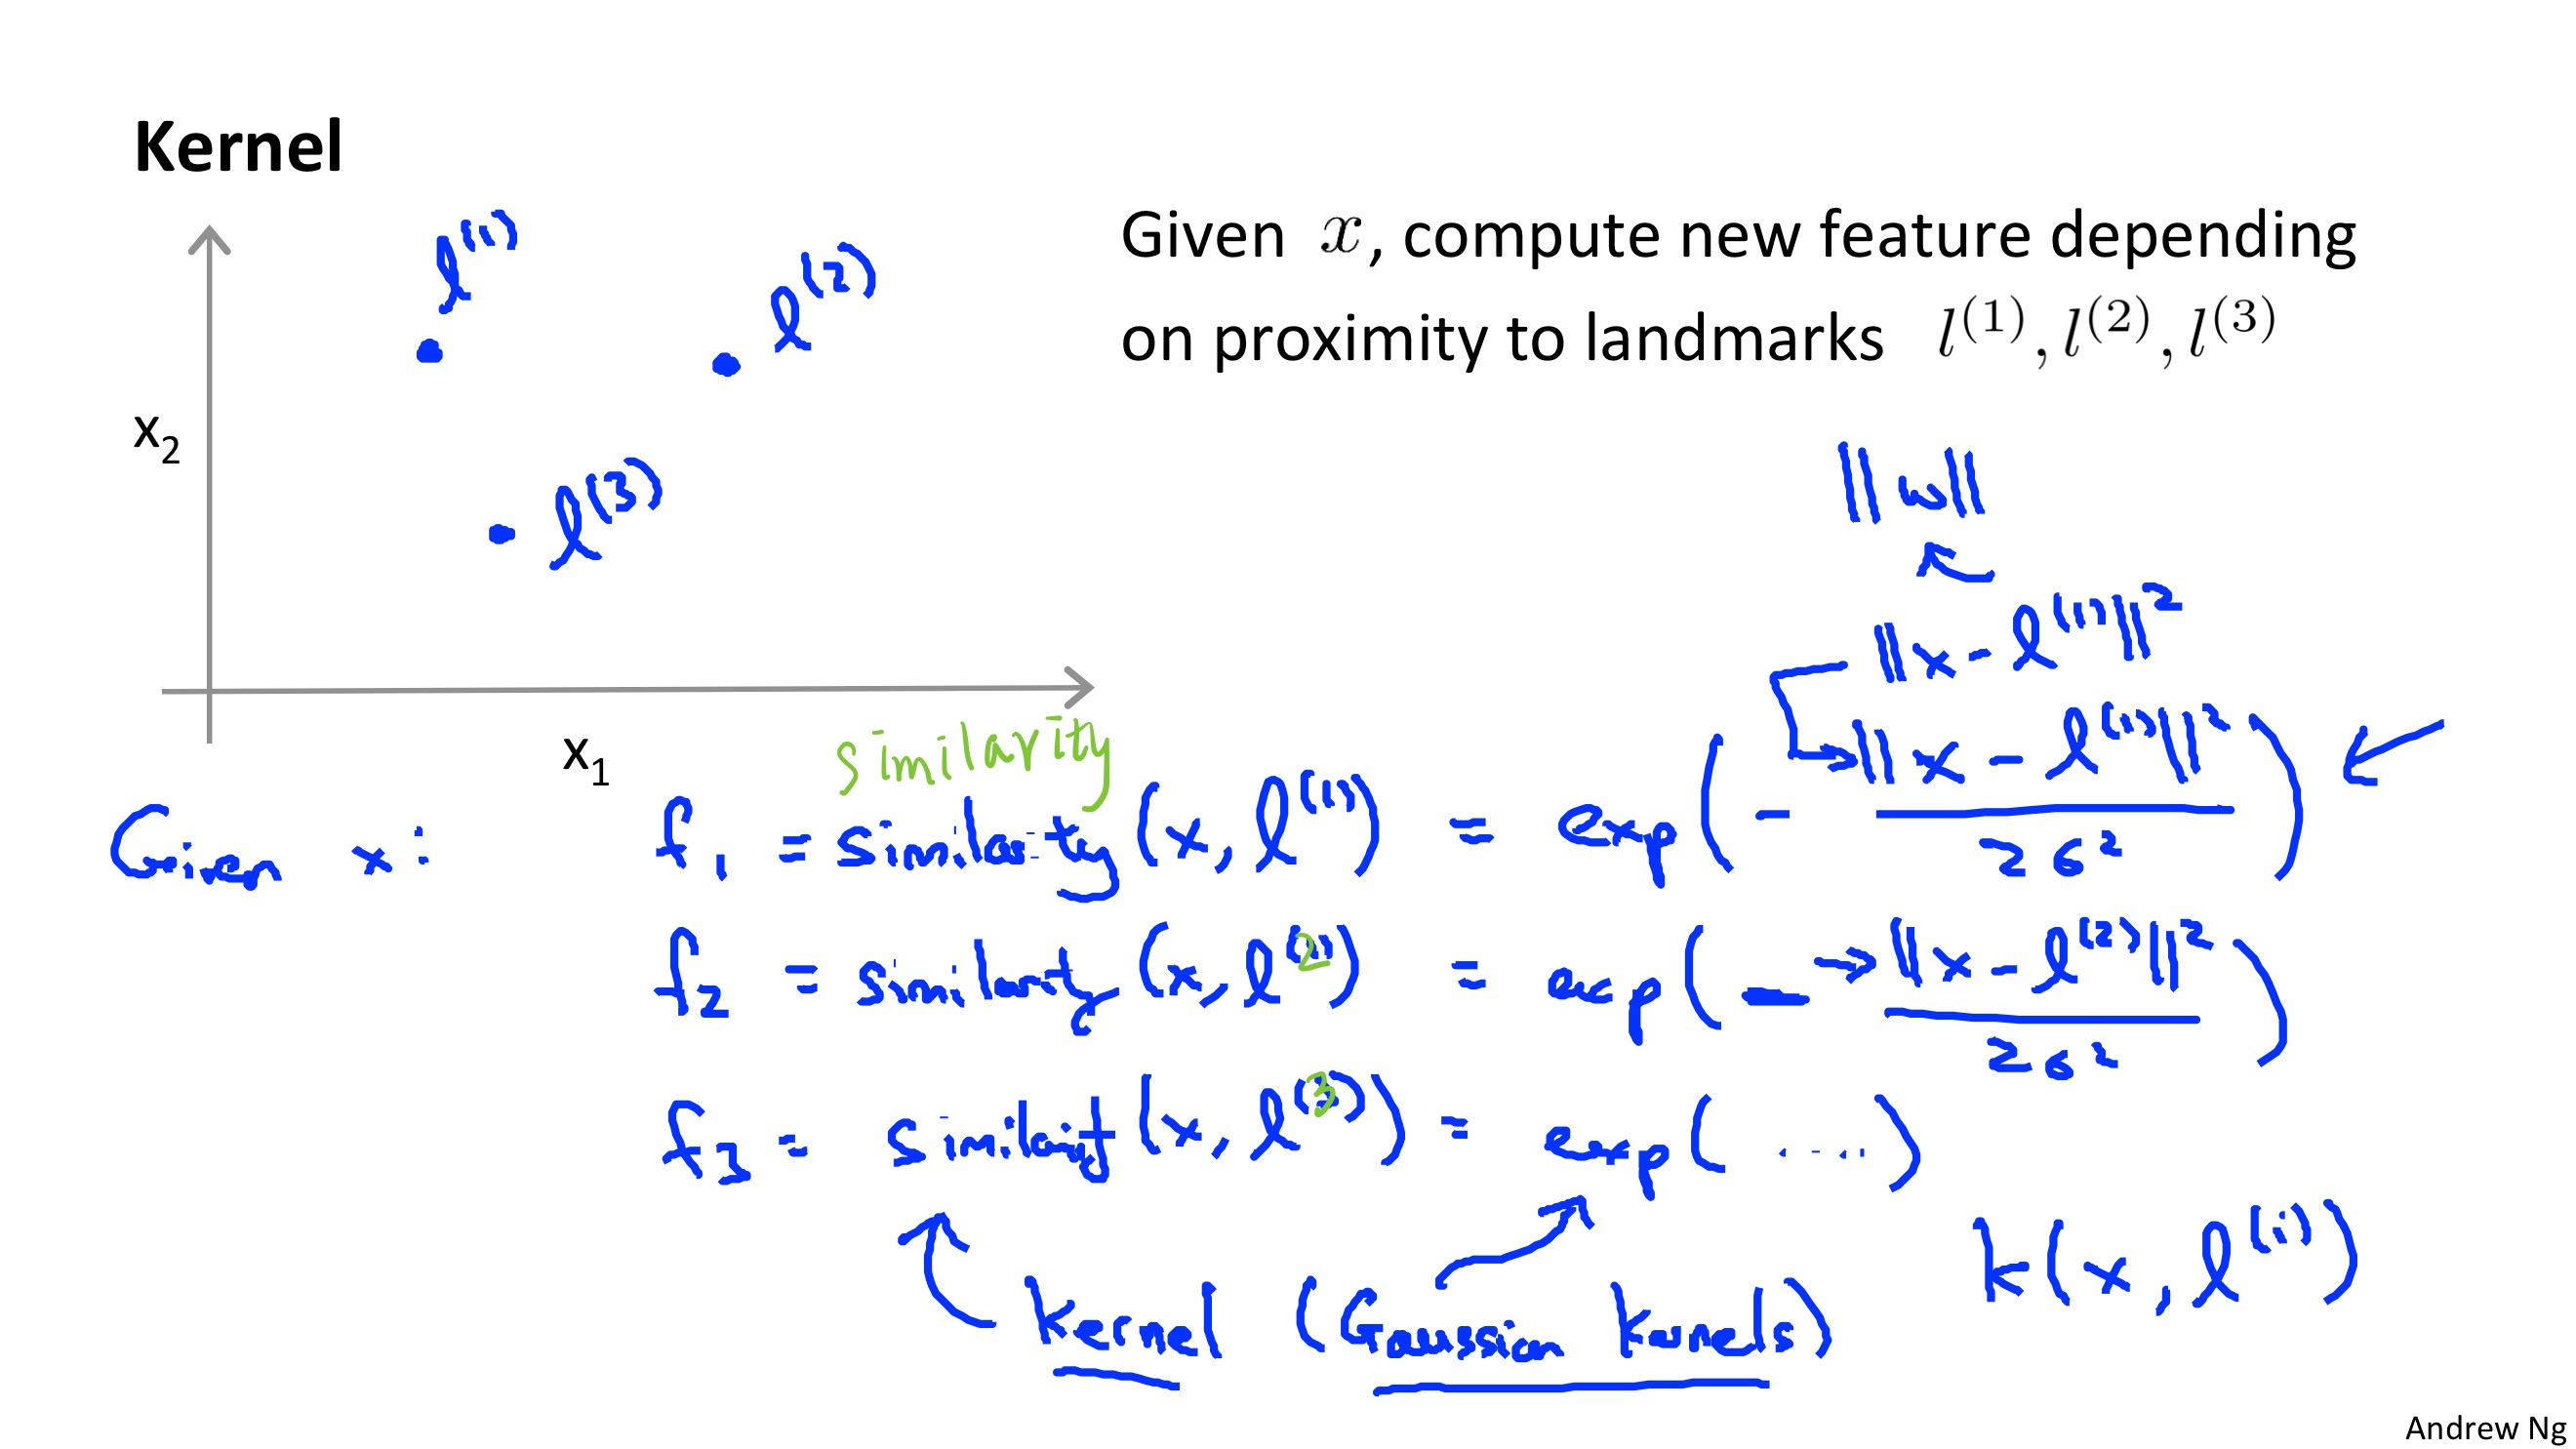 Kernel
l^(1)
l^(2)
Given x, compute new feature depending
on proximity to landmarks l^(1), l^(2), l^(3)
x_2
l^(3)
||w||
||x - l^(1)||^2
x_1
similarity
Given x: f_1 = similarity (x, l^(1)) = exp(- ||x - l^(1)||^2 / 2σ^2)
f_2 = similarity (x, l^(2)) = exp(- ||x - l^(2)||^2 / 2σ^2)
f_3 = similarity (x, l^(3)) = exp( .... )
k(x, l^(i))
Kernel (Gaussian kernels)
Andrew Ng